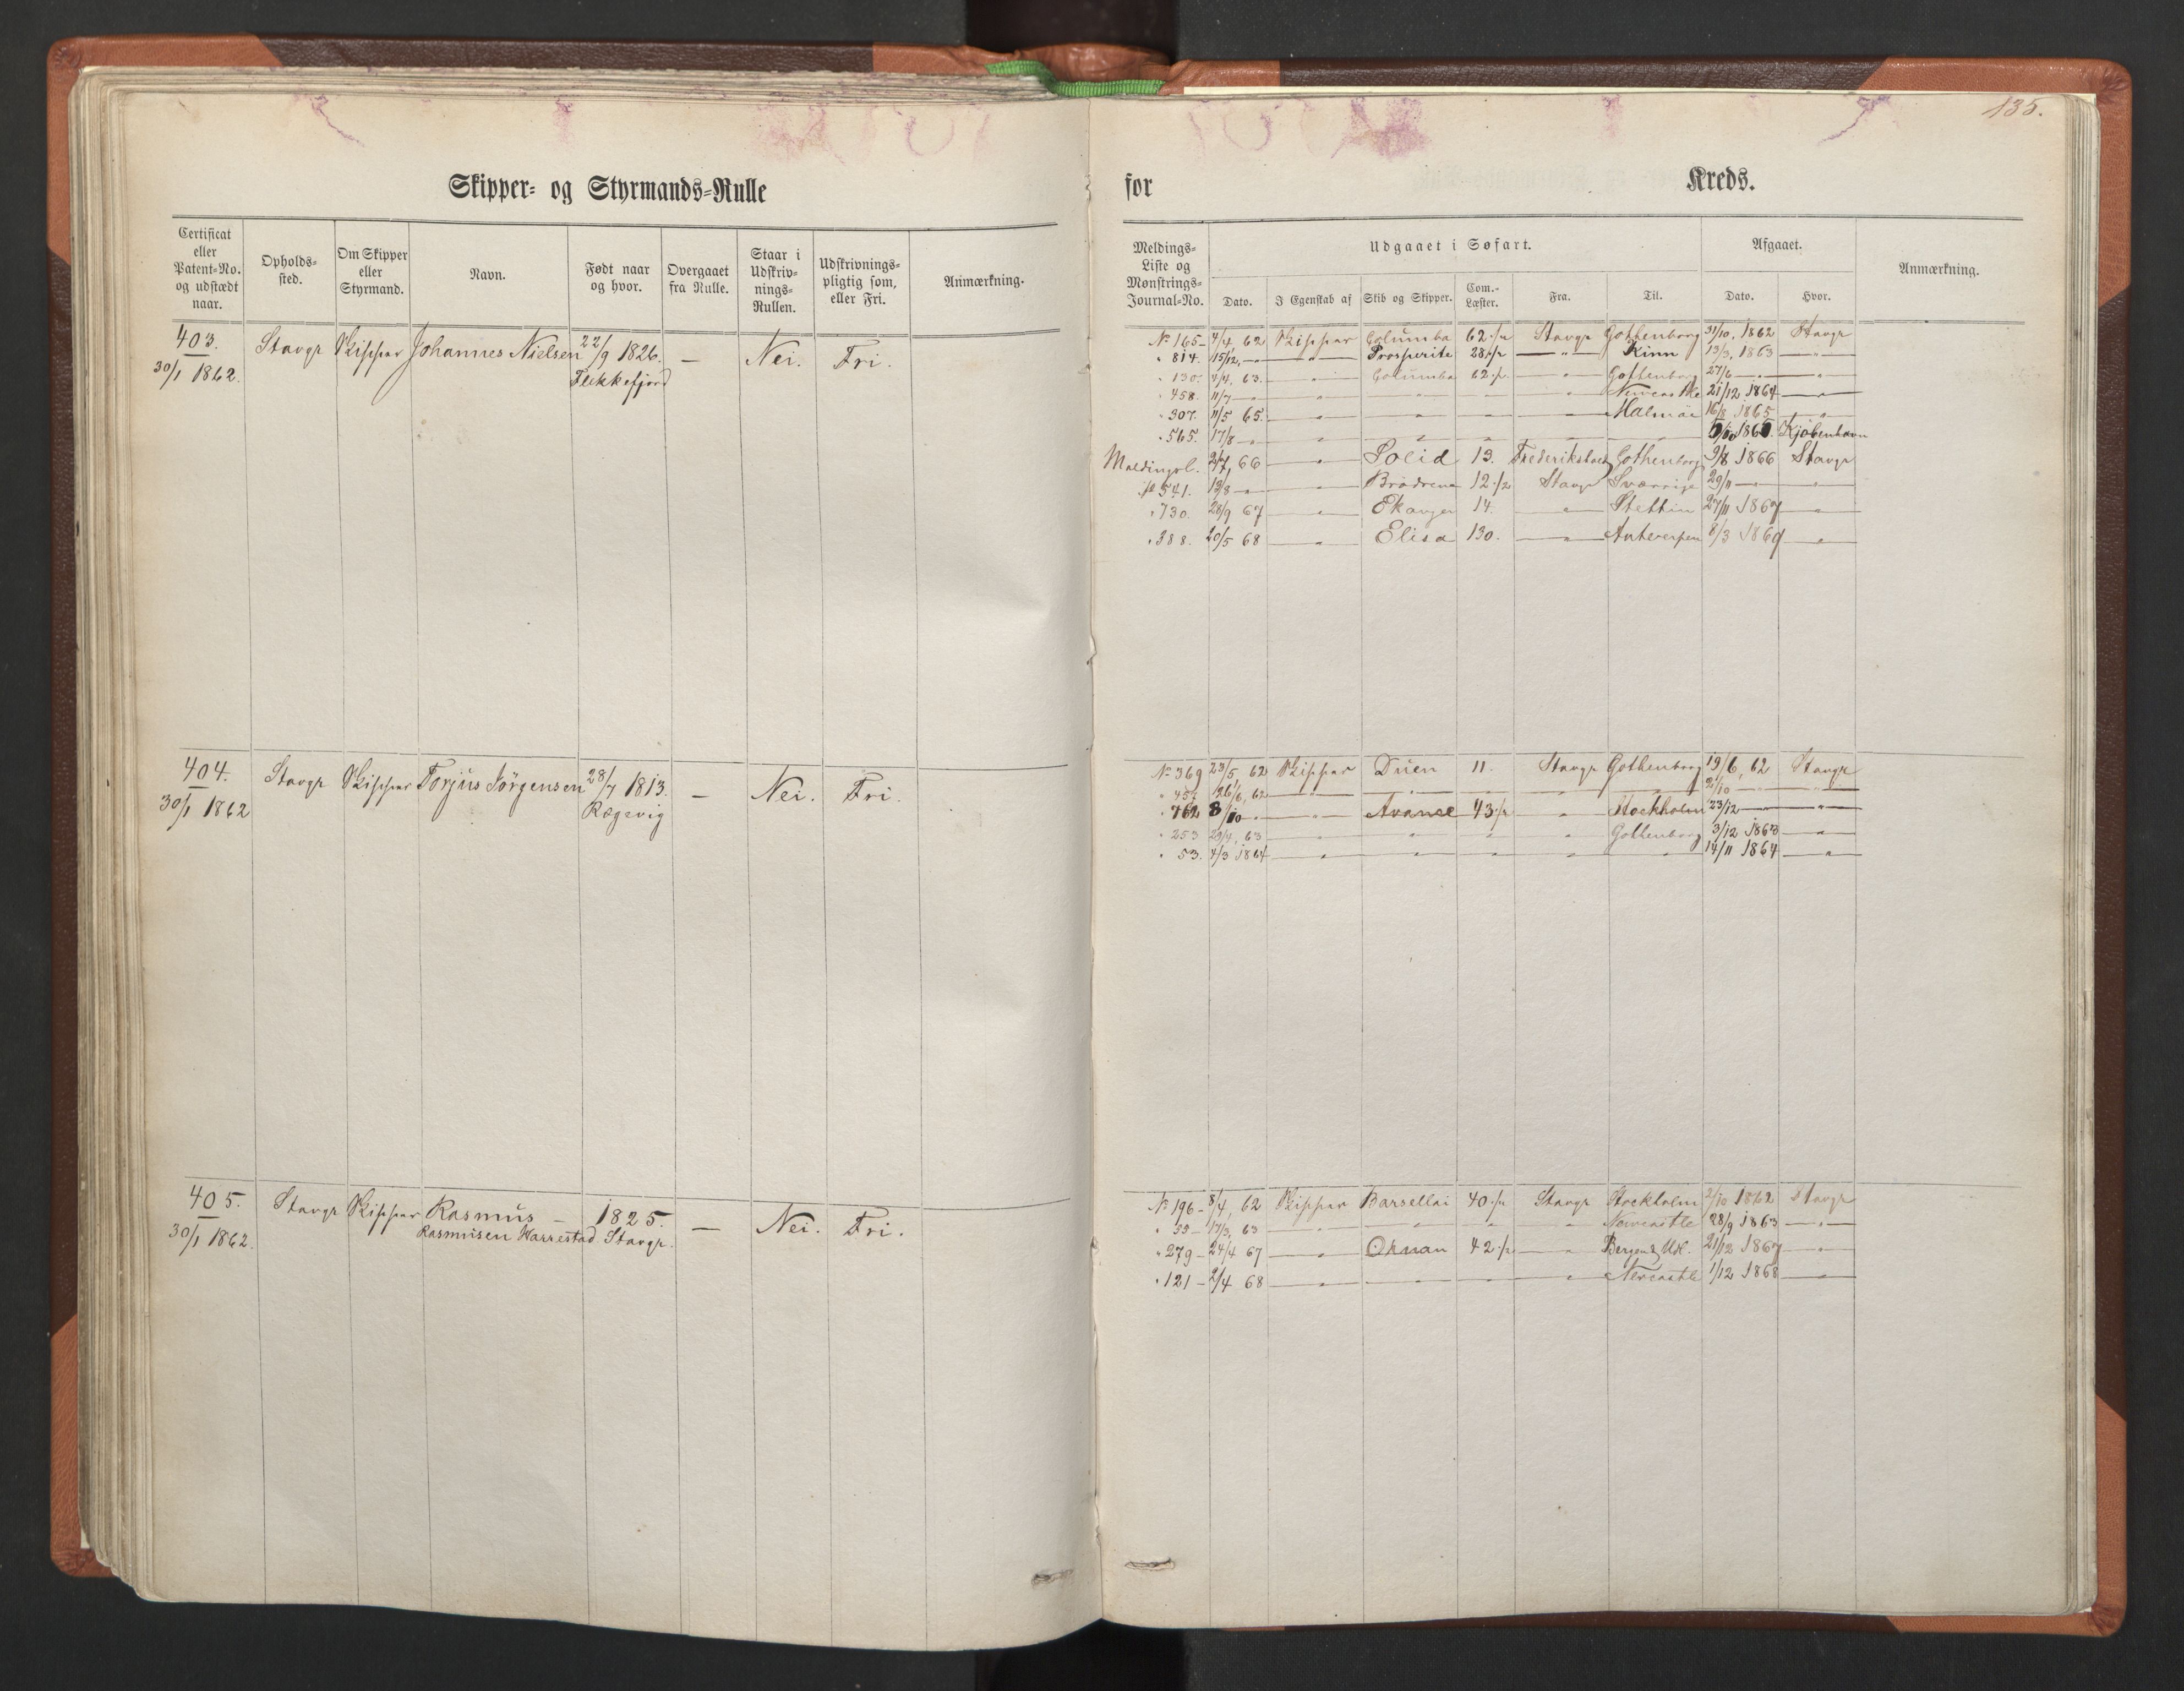 135.
Skipper- og Styrmands-Rulle for Kreds.
Certificat eller Patent-No. og udstædt naar. Opholds-sted. Om Skipper eller Styrmand. Navn. Født naar og hvor. Overgaaet fra Rulle. Staar i Udskriv-nings-Rullen. Udskrivnings-pligtig som, eller Fri. Anmærkning.
Meldings-Liste og Mønstrings-Journal-No. Udgaaet i Søfart. Afgaaet. Anmærkning.
Dato. I Egenskab af Skib og Skipper. Com.-Læster. Fra. Til. Dato. Hvor.
403. Stavgr Skipper Johannes Nielsen 22/9 1826. — Nei. Fri.
30/1 1862. Flekkefjord
No 165 - 4/4 62 Skipper Columba 62 1/2 Stavgr Gothenborg 31/10. 1862 Stavgr
" 814. 15/12, — " Prosperite 28 1/2 — " — Kinn 13/3. 1863 — " —
" 130. 4/4. 63. — " — Columba 62 1/2 — " — Gothenborg 27/6 — " — "
" 458. 11/7 — " " " " " Newcastle 21/12 1864 — " —
" 307. 11/5 65. — " " " " " Malmöe 16/8 1865 "
" 565. 17/8 — " " " " " " 1865. Kjøbenhavn
Meldingsl. 2/7, 66 — " — Solid 13. Frederikshald Gothenborg 9/8 1866 Stavgr
No 541. 13/8 — " — " — Brödrene 12 1/2 Stavgr Sverrige 29/11 — " — "
" 730. 28/9 67 — " — 14. — " — Stettin 27/11 1867 — " —
" 388. 20/5 68 — " — Elisa 130. — " — Antwerpen 8/3 1869 — " —
404. Stavgr Skipper Torjus Jörgensen 28/7 1813. — Nei. Fri.
30/1 1862 Rægevig
No 369 23/5, 62 Skipper Duen 11. Stavgr Gothenborg 19/6, 62 Stavgr
" 457 26/6, 62 — " " " " " 2/10 — " — "
" 762 8/10 — " — " — Avance 43 1/2 " Stockholm 23/12 — " — "
" 253 29/4, 63 — " " " " Gothenborg 3/12 1863 — " —
" 53. 4/3 1864 — " " " " " 14/11 1864 — " —
405. Stavgr Skipper Rasmus — 1825. — Nei. Fri.
30/1 1862. Rasmusen Harrestad Stavgr.
No 196 - 8/4, 62 Skipper Barsellai 40 1/2 Stavgr Stockholm 2/10 1862 Stavgr
" 55 - 17/3, 63 — " " " " Newcastle 28/9 1863 — " —
" 279 - 24/4 67 — " — 42 1/2 — " — Bergen & Udl. 21/12 1867 — " —
" 121 - 2/4 68 — " " " " Newcastle 1/12 1868 — " —